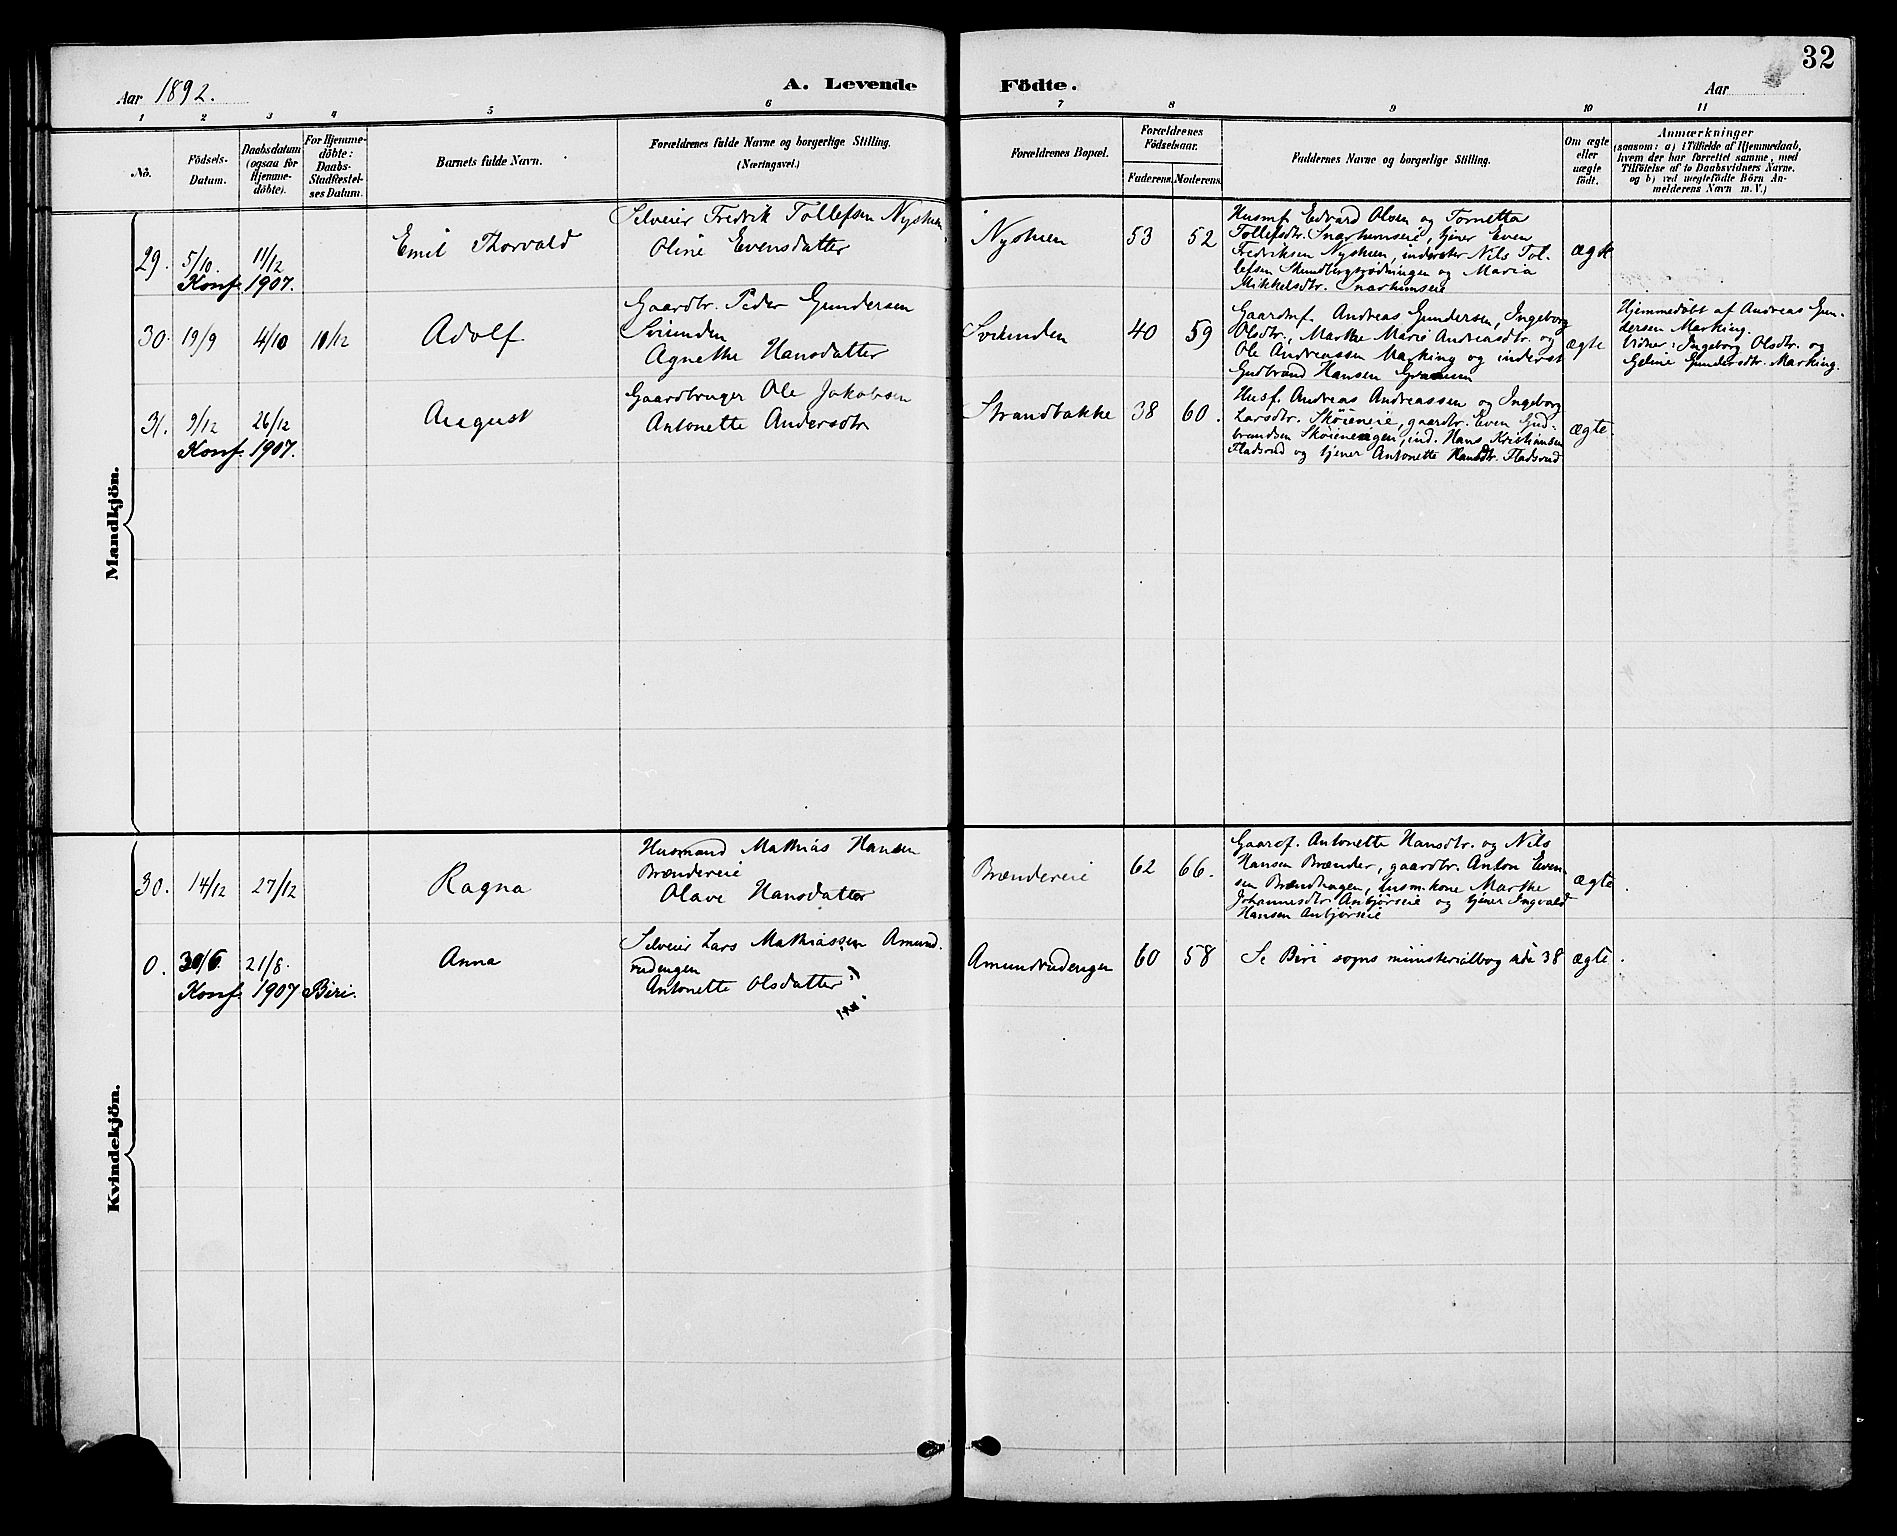 32
Aar 1892.
A. Levende Födte.
Aar
1 2 3 4 5 6 7 8 9 10 11
No.
Födsels-
Datum.
Daabsdatum
(ogsaa for
Hjemme-
döbte).
For Hjemme-
döbte:
Daabs-
Stadfæstel-
ses Datum.
Barnets fulde Navn.
Forældrenes fulde Navne og borgerlige Stilling.
(Næringsvei.)
Forældrenes Bopæl.
Forældrenes
Födselsaar.
Faderens. Moderens.
Faddernes Navne og borgerlige Stilling.
Om ægte
eller
uægte
født.
Anmærkninger
(saasom: a) i Tilfælde af Hjemmedaab,
hvem der har forrettet samme, med
Tilföielse af to Daabsvidners Navne,
og b) ved uegtefödte Börn An-
melderens Navn m. V.)
Mandkjön.
29. 5/10. 11/12
Konf. 1907.
Emil Thorvald
Selveier Fredrik Tollefsen Nyshuen
Oline Evensdatter
Nyshuen
53 52
Husmf. Edvard Olsen og Tornetta
Tollefsdtr. Snarhemseie, tjener Even
Fredriksen Nyshuen, inderster Nils Tol-
lefsen og Maria
Mikkelsdtr. Snarhemseie
ægte
30. 19/9 4/10 11/12
Adolf
Gaardbr. Peder Gundersen
Sveunden
Agnethe Hansdatter
Sveunden
40 59
Gaardmf. Andreas Gundersen, Ingeborg
Olsdtr., Marthe Marie Andreasdtr. og
Ole Andreassen Marking og inderst
Gudbrand Hansen
ægte
Hjemmedøbt af Andreas Gun-
dersen Marking.
Vidner: Ingeborg Olsdtr. og
Geline Gundersdtr. Marking.
31. 9/12 26/12
Konf. 1907.
August
Gaardbruger Ole Jakobsen
Antonette Andersdtr
Strandbakke
38 60.
Husf. Andreas Andreassen og Ingeborg
Larsdtr. Skøieneie, gaardbr. Even Gud-
brandsen Skøienengen, ind. Hans Kristiansen
Fladsrud og tjener Antonette Hansdtr. Fladsrud
ægte.
Kvindekjön.
30. 14/12 27/12
Ragna
Husmand Mathias Hansen
Brændereie
Olave Hansdatter
Brændereie
62 66.
Gaardf. Antonette Hansdtr. og Nils
Hansen Brænder, gaardbr. Anton Even-
sen Brændhagen, husm. kone Marthe
Johannesdtr. Anbjørseie og tjener Ingvald
Hansen Anbjørseie
ægte.
0. 30/6 21/8.
Konf. 1907 Biri.
Anna
Selveier Lars Mathiassen Amund-
rudengen
Antonette Olsdatter
Amundrudengen
60 58
Se Biri sogns ministerialbog side 38
ægte.